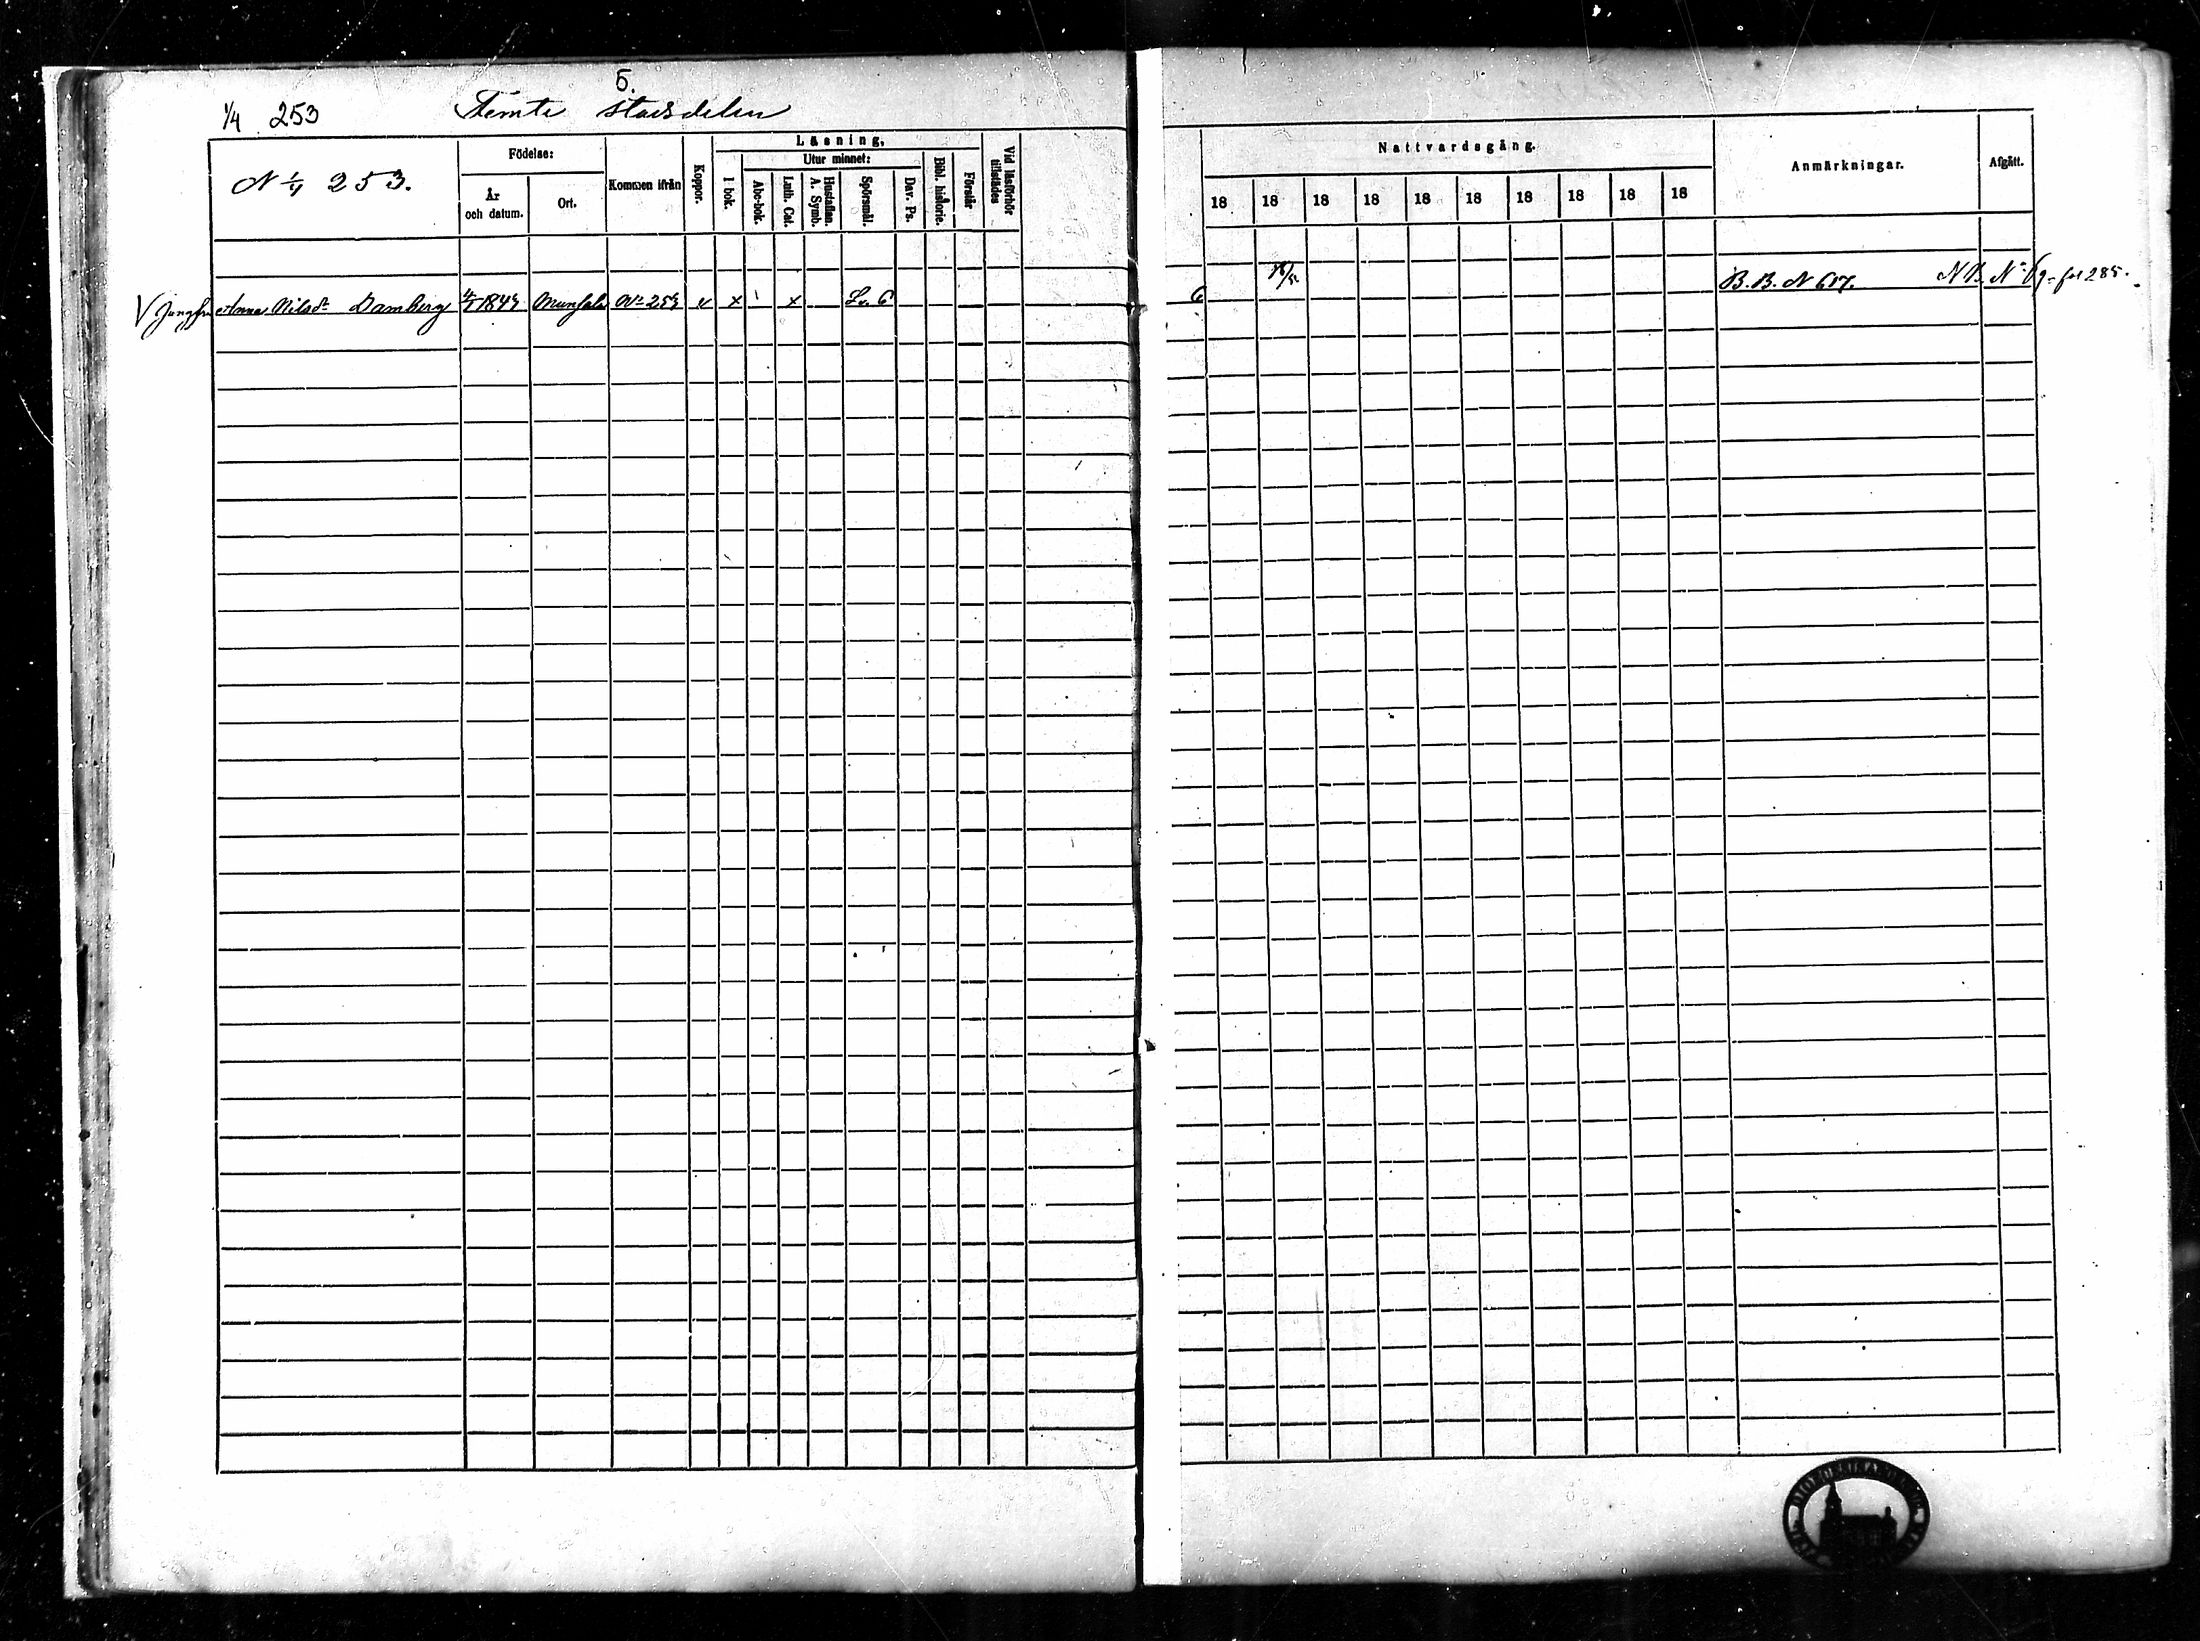 5.
1/4 253 Femte stadsdelen
N 1/4 253.
Födelse:
År och datum.
Ort.
Kommen ifrån
Koppor.
Läsning.
I bok.
Utur minnet:
Abc-bok.
Luth. Cat.
Hustaflan. A. Symb.
Spörsmål.
Dav. Ps.
Bibl. historie.
Förstår
Vid läsförhör tillstädes
Nattvardsgång.
18 18 18 18 18 18 18 18 18 18
Anmärkningar.
Afgått.
V Jungfru Anna Nilsdr Damberg Munsala v x x 6
B. B. N 617. N B. fol 285.